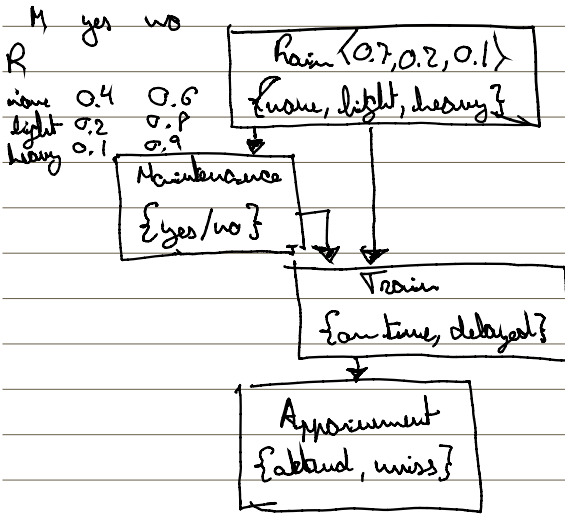 M yes no
R
none 0.4 0.6
light 0.2 0.8
heavy 0.1 0.9
Rain <0.7, 0.2, 0.1>
{none, light, heavy}
Maintenance
{yes/no}
Train
{on time, delayed}
Appoinment
{attend, miss}